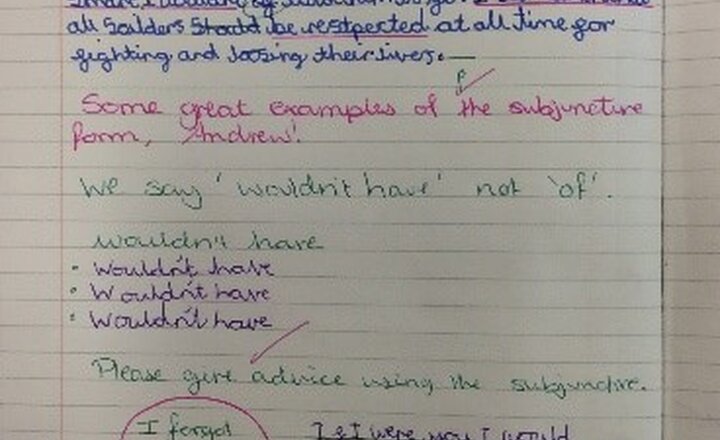 all Soilders Should be restpected at all time for
fighting and loosing their lives.
P
Some great examples of the subjunctive
form, Andrew!
We say 'wouldn't have' not 'of'.
wouldn't have
• Wouldn't have
• Wouldn't have
• Wouldn't have
Please give advice using the subjunctive.
I forgot I were you I would